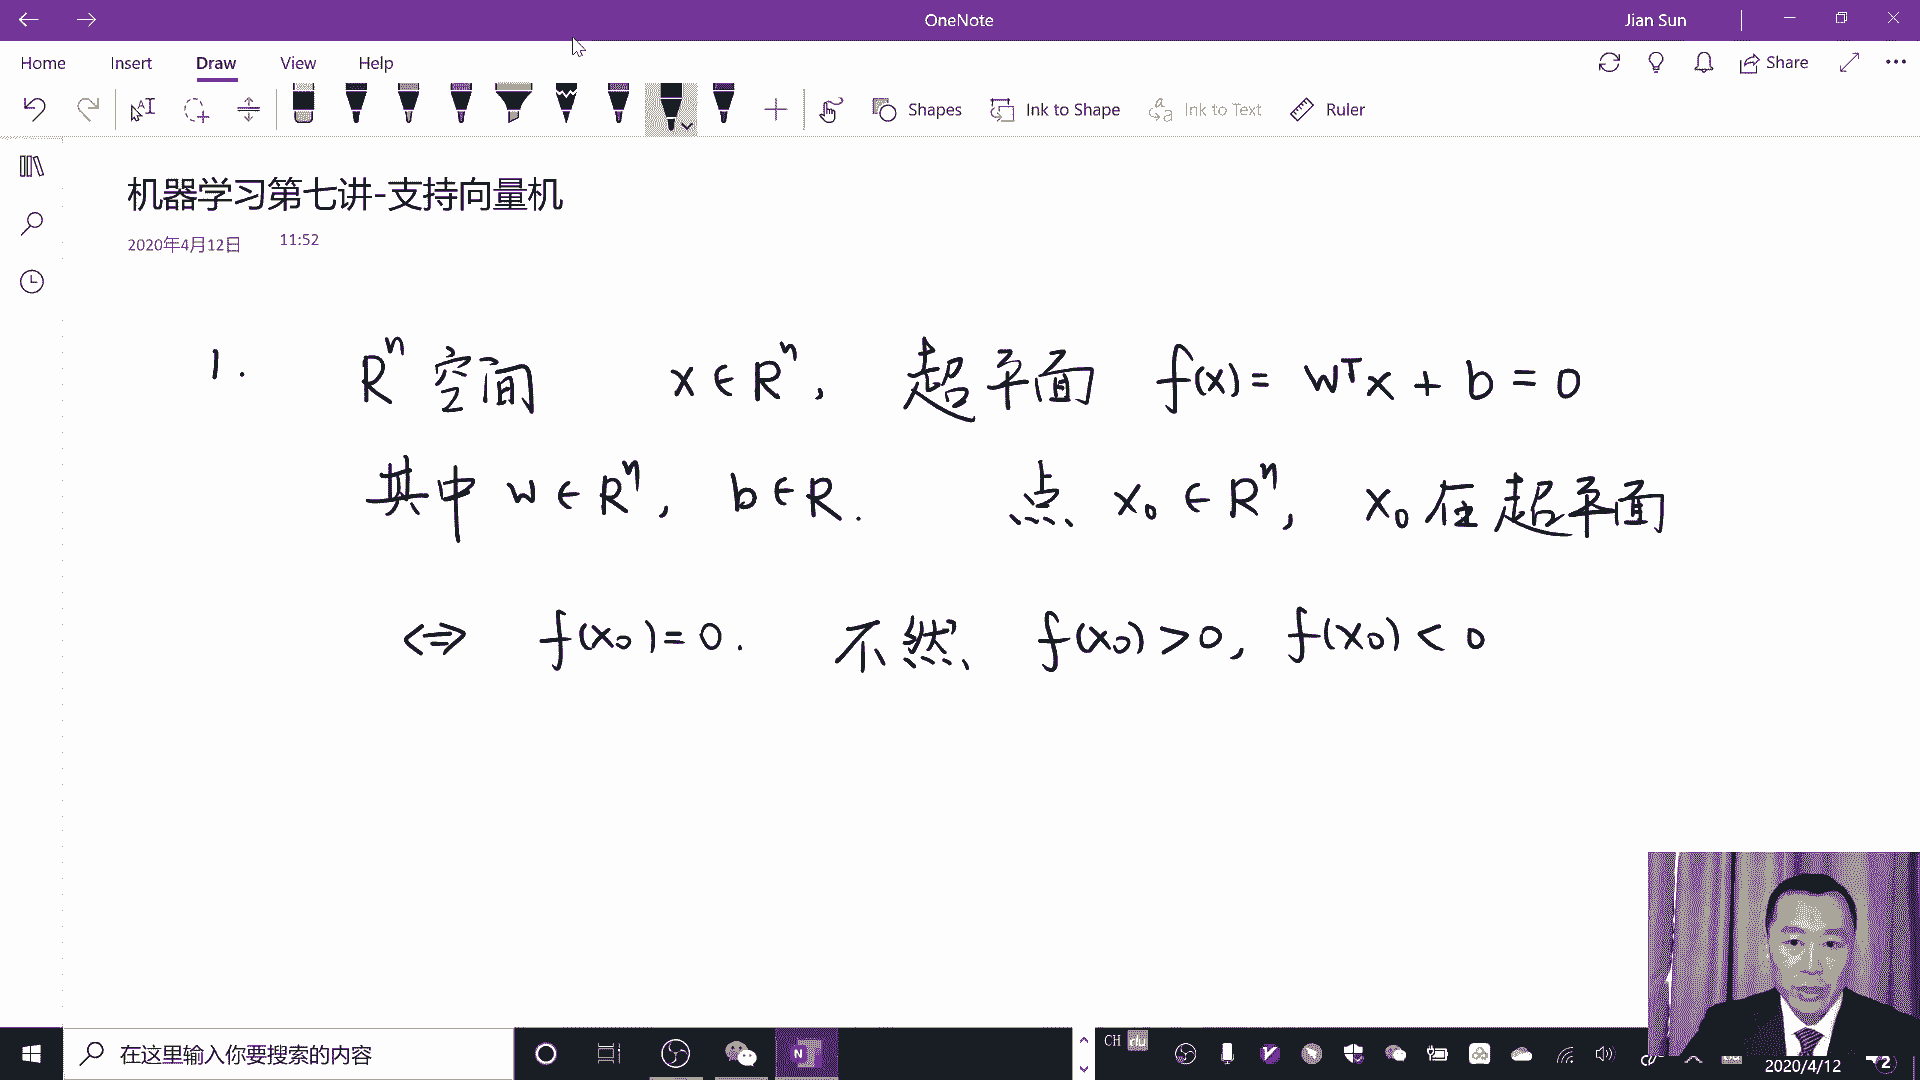 OneNote
Jian Sun
Home Insert Draw View Help
Share
Shapes Ink to Shape Ink to Text Ruler
机器学习第七讲-支持向量机
2020年4月12日 11:52
1. Rⁿ空间 x∈Rⁿ, 超平面 f(x)= wᵀx + b = 0
其中 w∈Rⁿ, b∈R. 点 x₀∈Rⁿ, x₀在超平面
<=> f(x₀)=0. 不然 f(x₀)>0, f(x₀)<0
在这里输入你要搜索的内容
CH
2020/4/12
2